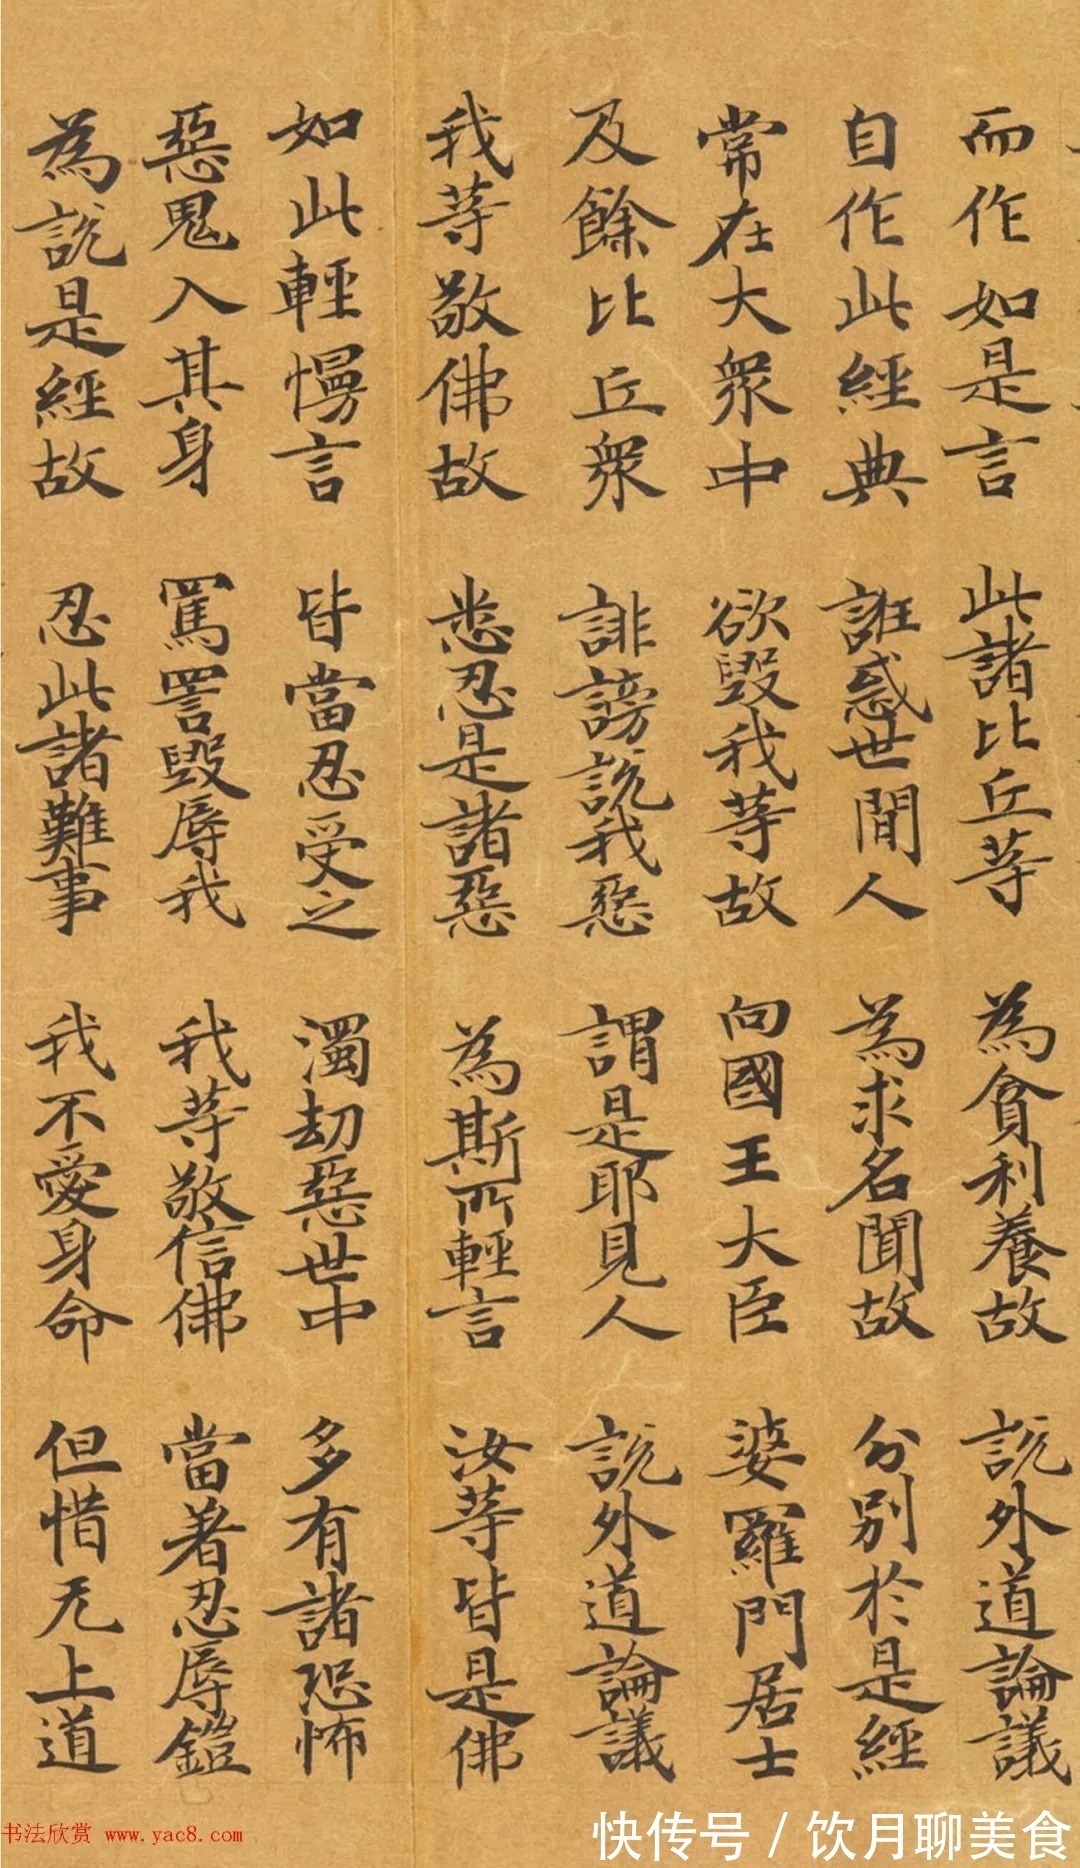 而作如是言 此諸比丘等 為貪利養故 說外道論議
自作此經典 誑惑世間人 為求名聞故 分別於是經
常在大衆中 欲毀我等故 向國王大臣 婆羅門居士
及餘比丘衆 誹謗說我惡 謂是耶見人 說外道論議
我等敬佛故 悉忍是諸惡 為斯所輕言 汝等皆是佛
如此輕慢言 皆當忍受之 濁劫惡世中 多有諸恐怖
惡鬼入其身 罵詈毀辱我 我等敬信佛 當著忍辱鎧
為說是經故 忍此諸難事 我不愛身命 但惜无上道
书法欣赏 www.yac8.com
快传号/饮月聊美食